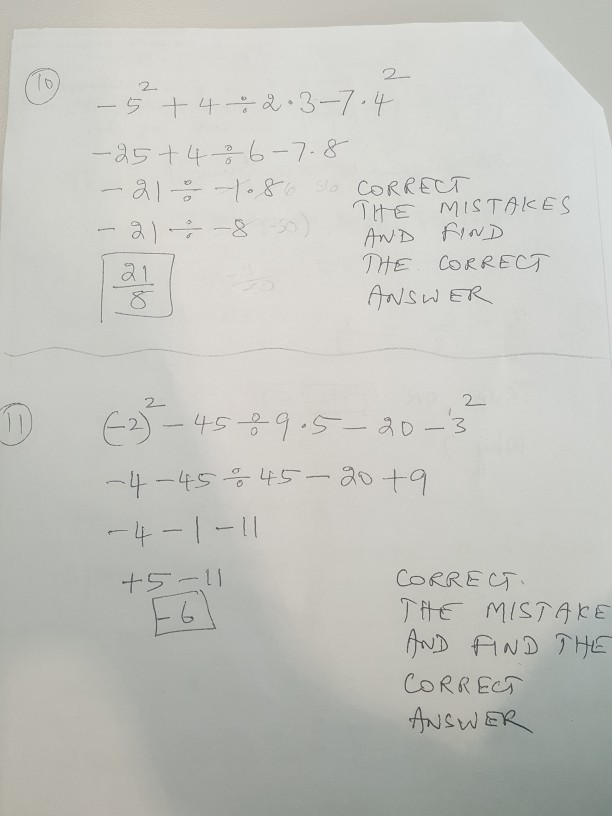 10
-5² + 4 ÷ 2 · 3 - 7 · 4²
-25 + 4 ÷ 6 - 7 · 8
-21 ÷ -1 · 8
-21 ÷ -8
21/8
CORRECT
THE MISTAKES
AND FIND
THE CORRECT
ANSWER
11
(-2)² - 45 ÷ 9 · 5 - 20 - 3²
-4 - 45 ÷ 45 - 20 + 9
-4 - 1 - 11
+5 - 11
-6
CORRECT.
THE MISTAKE
AND FIND THE
CORRECT
ANSWER